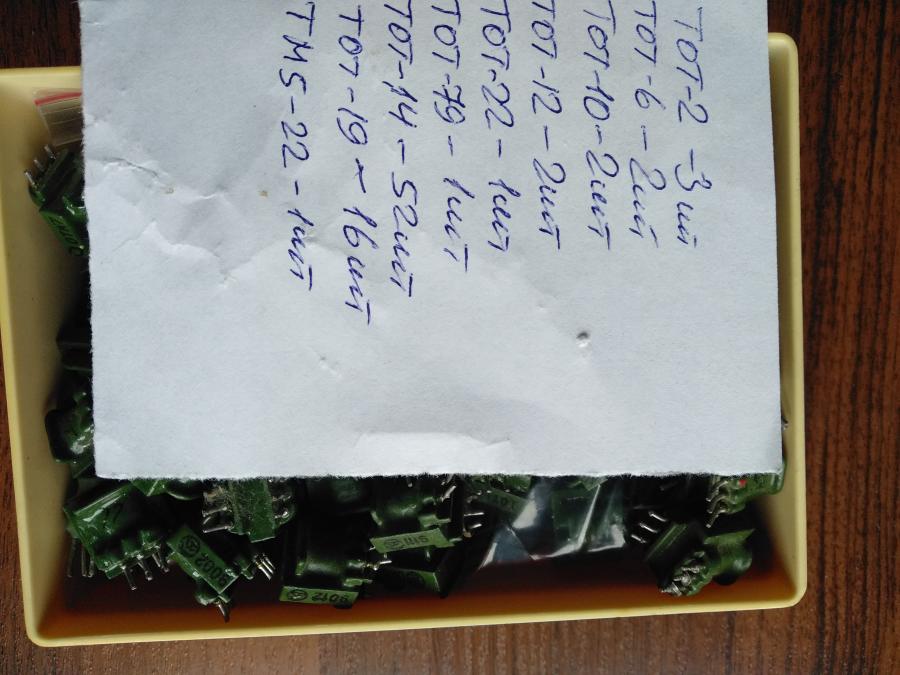 ТОТ-2 -3шт
ТОТ-6 - 2шт
ТОТ-10-2шт
ТОТ-12-2шт
ТОТ-22-1шт
ТОТ-79-1шт
ТОТ-14-52шт
ТОТ-19-16шт
ТМ5-22-1шт
9002
9012
9111